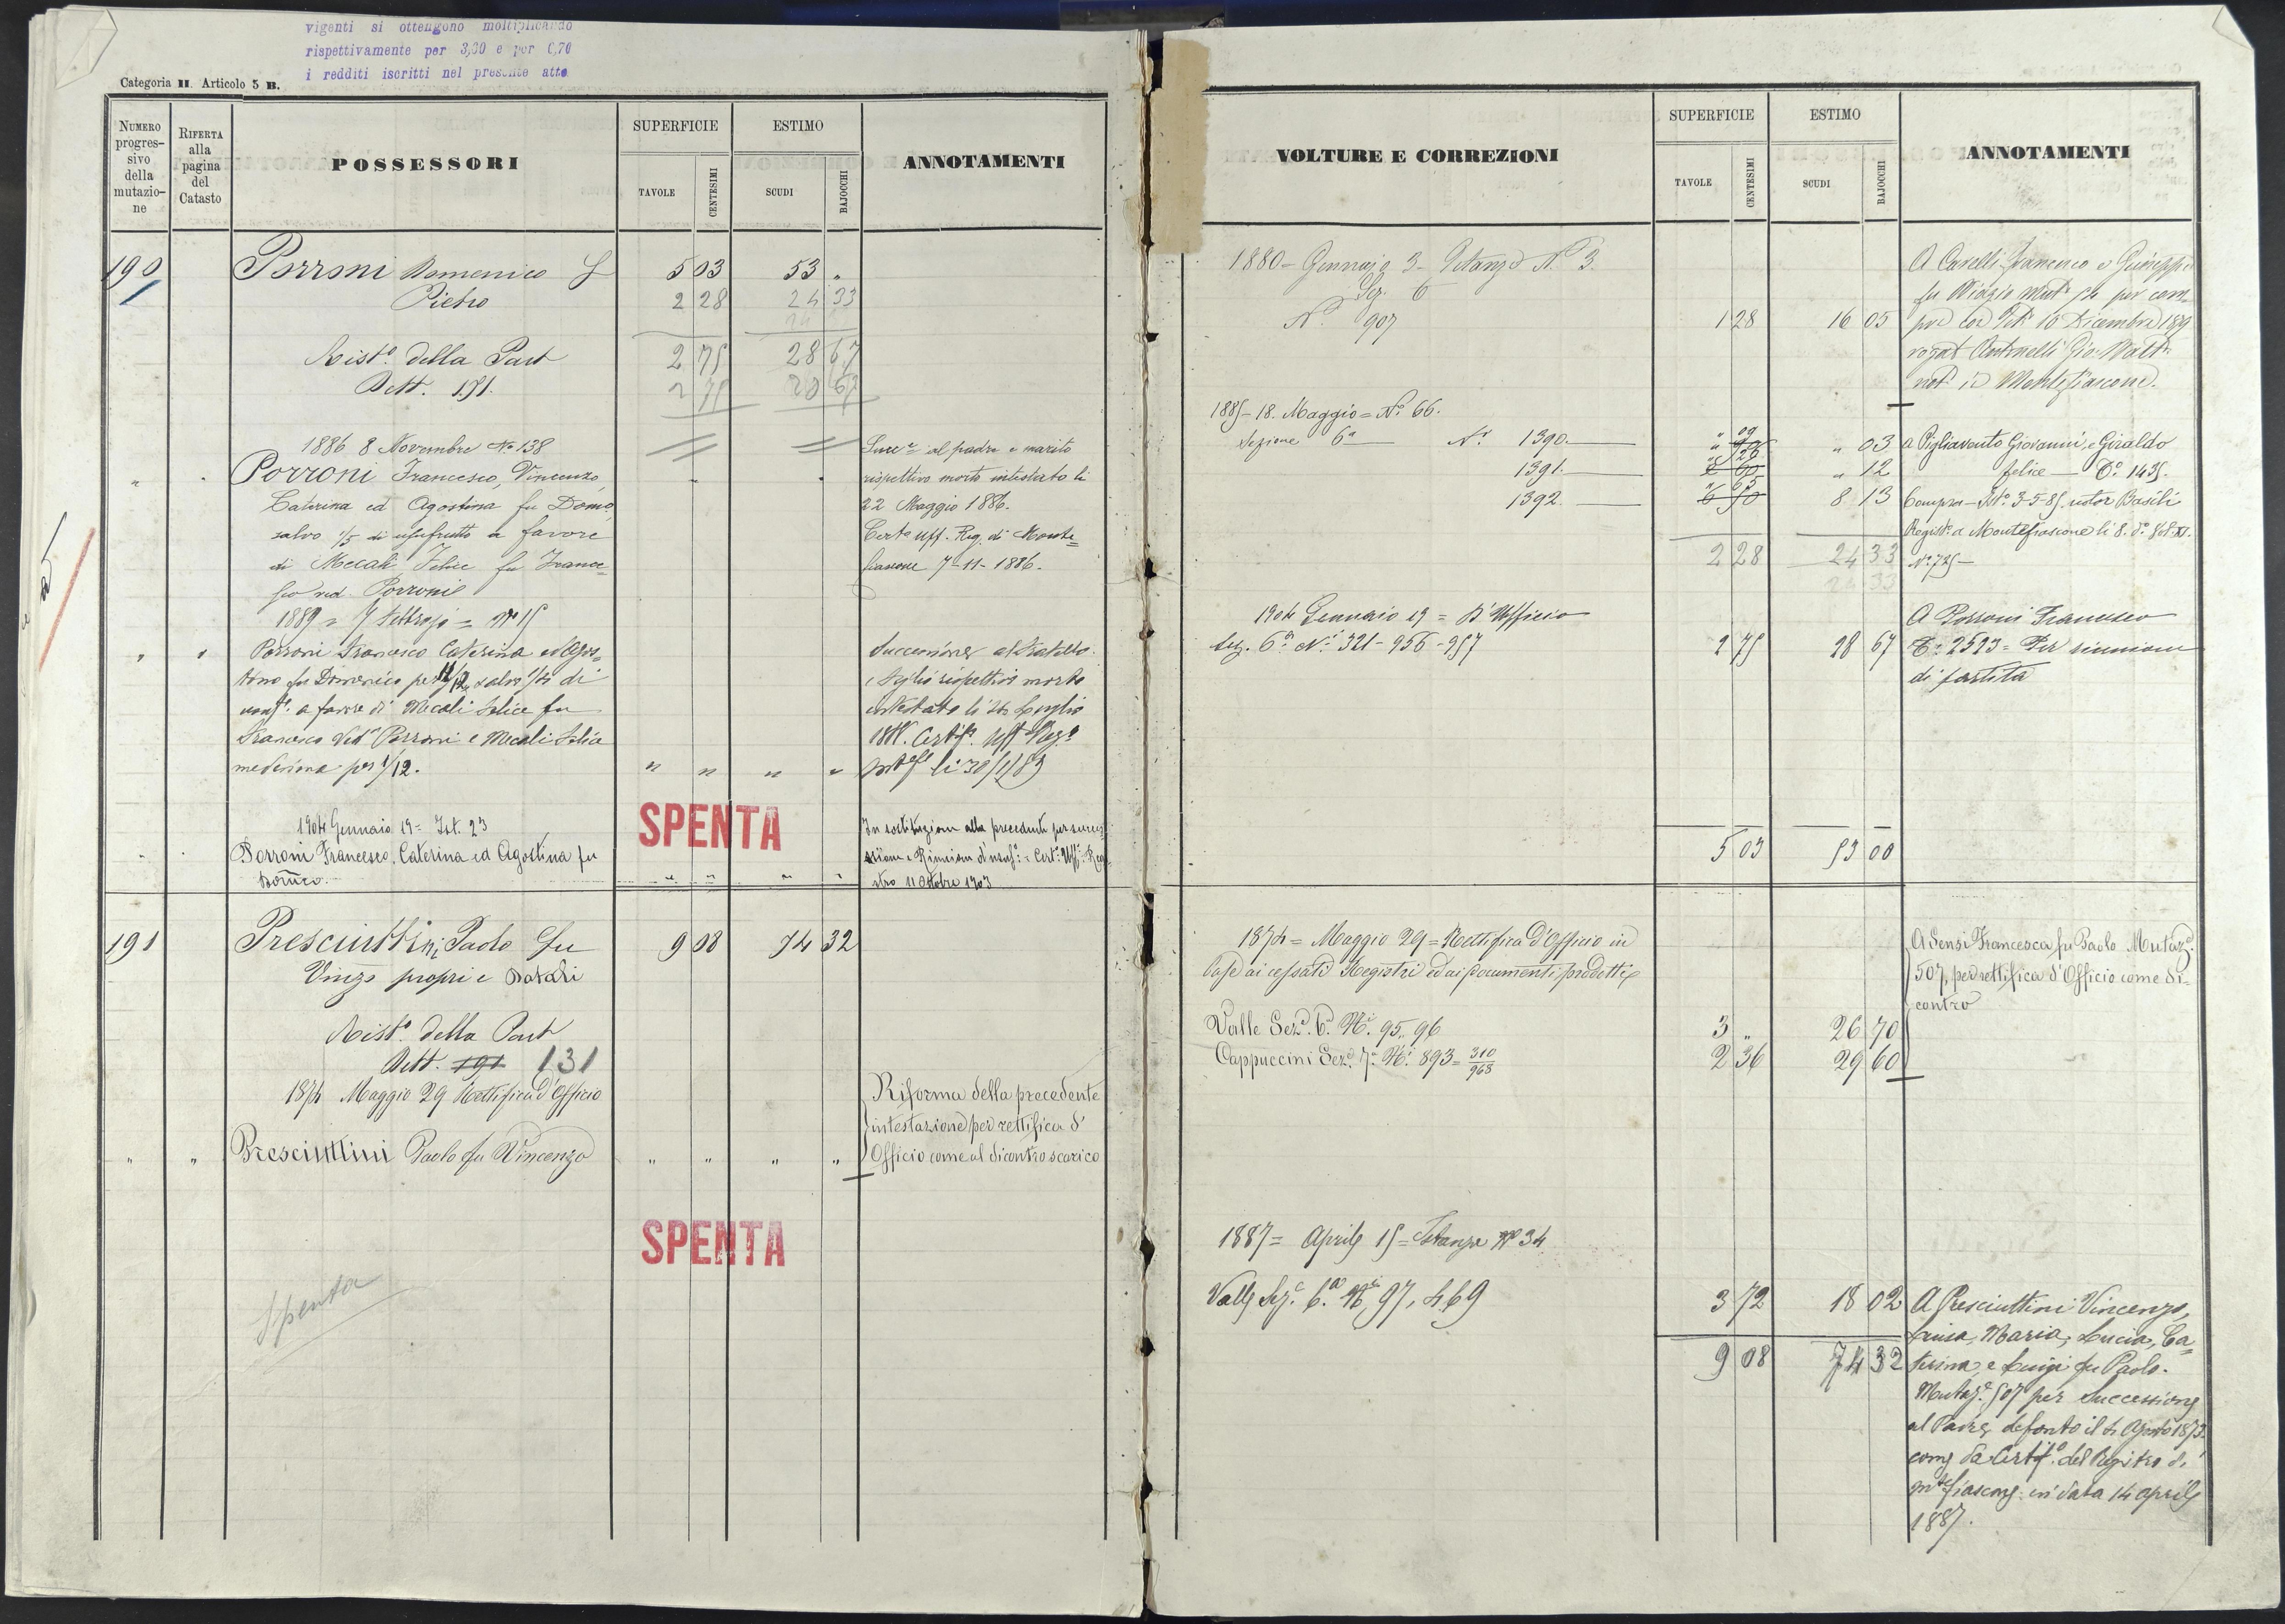 vigenti si ottengono moltiplicando
rispettivamente per 3,00 e per 0,70
i redditi iscritti nel presente atto
Categoria II. Articolo 5 B.
NUMERO progres-sivo della mutazio-ne
RIFERTA alla pagina del Catasto
POSSESSORI
SUPERFICIE
TAVOLE
CENTESIMI
ESTIMO
SCUDI
BAJOCCHI
ANNOTAMENTI
190 Porroni Domenico 5 03 53 "
Pietro 2 28 24 33
Rist.o della Part 2 75 28 67
Dett. 191. 2 75 28 67
1886 8 Novembre No 138
Porroni Francesco, Vincenzo,
Caterina ed Agostina fu Dom.o
salvo 1/5 di usufrutto a favore
di Mecali Felice fu France=
sco ved. Porroni
Succ.e al padre e marito
rispettivo morto intestato li
22 Maggio 1886.
Cert.o Uff. Reg. di Monte=
fiascone 7-11-1886.
1889 = 7 Febbrajo = No 15
Porroni Francesco Caterina ed Agos=
tina fu Domenico per 11/12 salvo di
usuf.o a favore di Mecali Felice fu
Francesco Ved.a Porroni e Mecali Felice
medesima per 1/12. " " " "
Successione al fratello
e figlio rispettivo morto
intestato li Luglio
Certif. Uff. Reg.o
li 30/1/89
1904 Gennaio 19 = Ist. 23
Porroni Francesco, Caterina ed Agostina fu
Dom.co " " " "
SPENTA
In sostituzione alla precedente per succes=
sione e Riunione d'usuf.o = Cert.o Uff.o Regi
stro 11 Ottobre 1903
191 Presciuttini Paolo fu 9 08 74 32
Vinzo propri e Dotali
Rist.o della Part
Dett. 191 131
1874 Maggio 29 Rettifica D'Officio
" " Presciuttini Paolo fu Vincenzo " " " "
Riforma della precedente
intestazione per rettifica d'
Officio come al dicontro scarico
SPENTA
Spenta
VOLTURE E CORREZIONI
SUPERFICIE
TAVOLE
CENTESIMI
ESTIMO
SCUDI
BAJOCCHI
ANNOTAMENTI
1880 = Gennajo 3 = Istanza No 3.
Sez. 6
No 907 1 28 16 05
A Carelli Francesco e Giuseppe
fu Biagio Mut.e per com
pra 10 Dicembre 1879
rogat Antonelli Gio. Batt.a
not. di Montefiascone.
1885 - 18. Maggio = No 66.
Sezione 6a No 1390. " 09 " 03
1391. " 12
1392. 8 13
2 28 24 33
24 33
a Pigliavento Giovanni, e Giraldo
felice
Compra 3-5-85 notar Basili
Regist.o a Montefiascone li 8. d.o
No 725
1904 Gennaio 19 = D'Ufficio
Sez. 6a No 321 - 956 - 957 2 75 28 67
A Porroni Francesco
2523 = Per riunione
di partita
5 03 53 00
1874 = Maggio 29 = Rettifica D'Officio in
base ai cessati Registri ed ai documenti prodotti
Valle Sez.e 6a No 95. 96 3 " 26 70
Cappuccini Sez.e 7a No 893 = 310/968 2 36 29 60
A Sensi Francesca fu Paolo Mutaz.e
507, per rettifica d'Officio come di-
contro
1887 = Aprile 15 = Istanza No 34
Valle Sez.e 6a No 97, 469 3 72 18 02
9 08 74 32
A Presciuttini Vincenzo,
Luisa, Maria, Lucia, Ca=
terina, e Luigi fu Paolo.
Mutaz.e 507 per Successione
al Padre defonto il 4 Agosto 1873.
come da Certif.o del Registro di
Mtefiascone in data 14 aprile
1887.